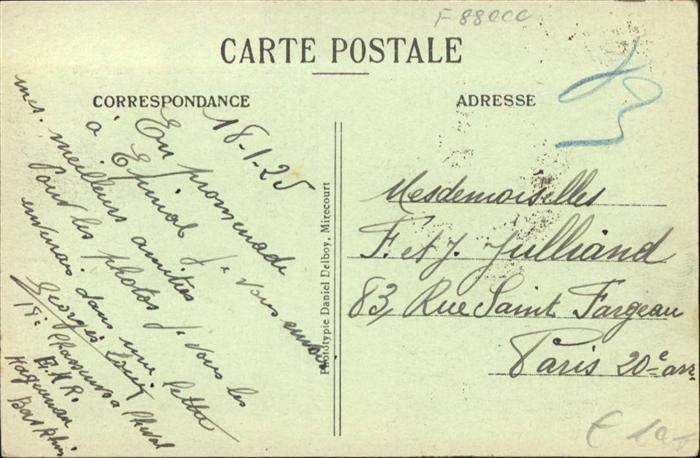 F 88000
CARTE POSTALE
CORRESPONDANCE
ADRESSE
18-1-25
En promenade
à Epinal je vous envoie
mes meilleurs amitiés
Pour les photos je vous les
enverrai dans une lettre
Georges
19e Chasseurs à Cheval
E.H.R.
Haguenau
Bas Rhin
Phototypie Daniel Delboy, Mirecourt
Mesdemoiselles
F. et J. Julliand
83, Rue Saint Fargeau
Paris 20e arr